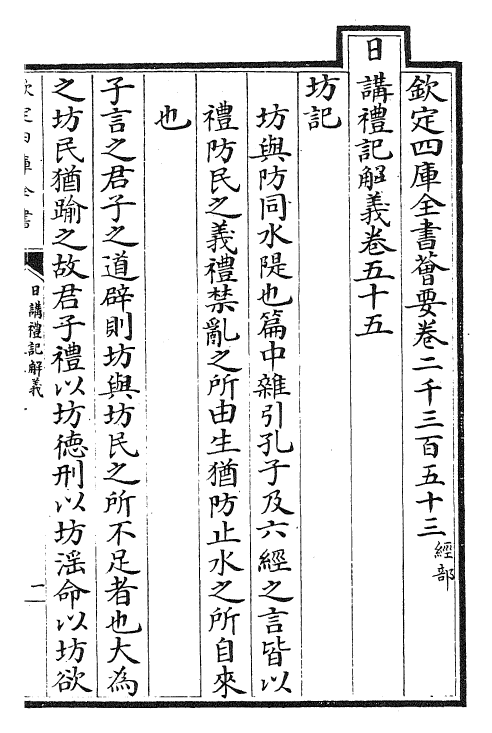 欽定四庫全書薈要卷二千三百五十三經部
日講禮記解義卷五十五
坊記
坊與防同水隄也篇中雜引孔子及六經之言皆以
禮防民之義禮禁亂之所由生猶防止水之所自來
也
子言之君子之道辟則坊與坊民之所不足者也大為
之坊民猶踰之故君子禮以坊德刑以坊淫命以坊欲
欽定四庫全書
日講禮記解義